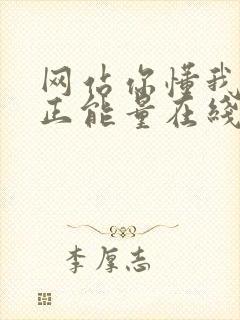 网站你懂我
正能量在线
李厚志